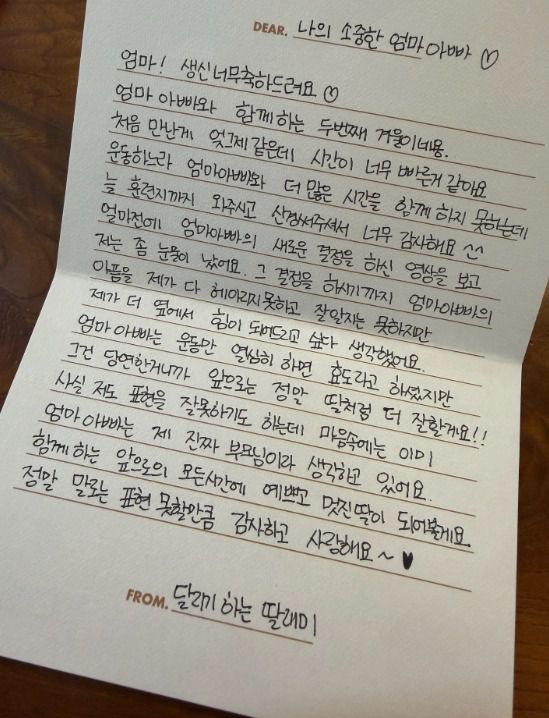 DEAR. 나의 소중한 엄마 아빠 ♡
엄마! 생신 너무 축하드려요 ♡
엄마 아빠와 함께하는 두번째 겨울이네용.
처음 만난게 엊그제 같은데 시간이 너무 빠른거 같아요
운동하느라 엄마아빠와 더 많은 시간을 함께 하지 못하는데
늘 훈련지까지 와주시고 신경써주셔서 너무 감사해요 ^^
얼마전에 엄마아빠의 새로운 결정을 하신 영상을 보고
저는 좀 눈물이 났어요. 그 결정을 하시기까지 엄마아빠의
아픔을 제가 다 헤아리지 못하고 잘알지는 못하지만
제가 더 옆에서 힘이 되어드리고 싶다 생각했어요.
엄마 아빠는 운동만 열심히 하면 효도라고 하셨지만
그건 당연한거니까 앞으로는 정말 딸처럼 더 잘할게요!!
사실 저도 표현을 잘못하기도 하는데 마음속에는 이미
엄마 아빠는 제 진짜 부모님이라 생각하고 있어요.
함께하는 앞으로의 모든시간에 예쁘고 멋진딸이 되어볼게요.
정말 말로는 표현 못할만큼 감사하고 사랑해요~ ♥
FROM. 달리기 하는 딸래미